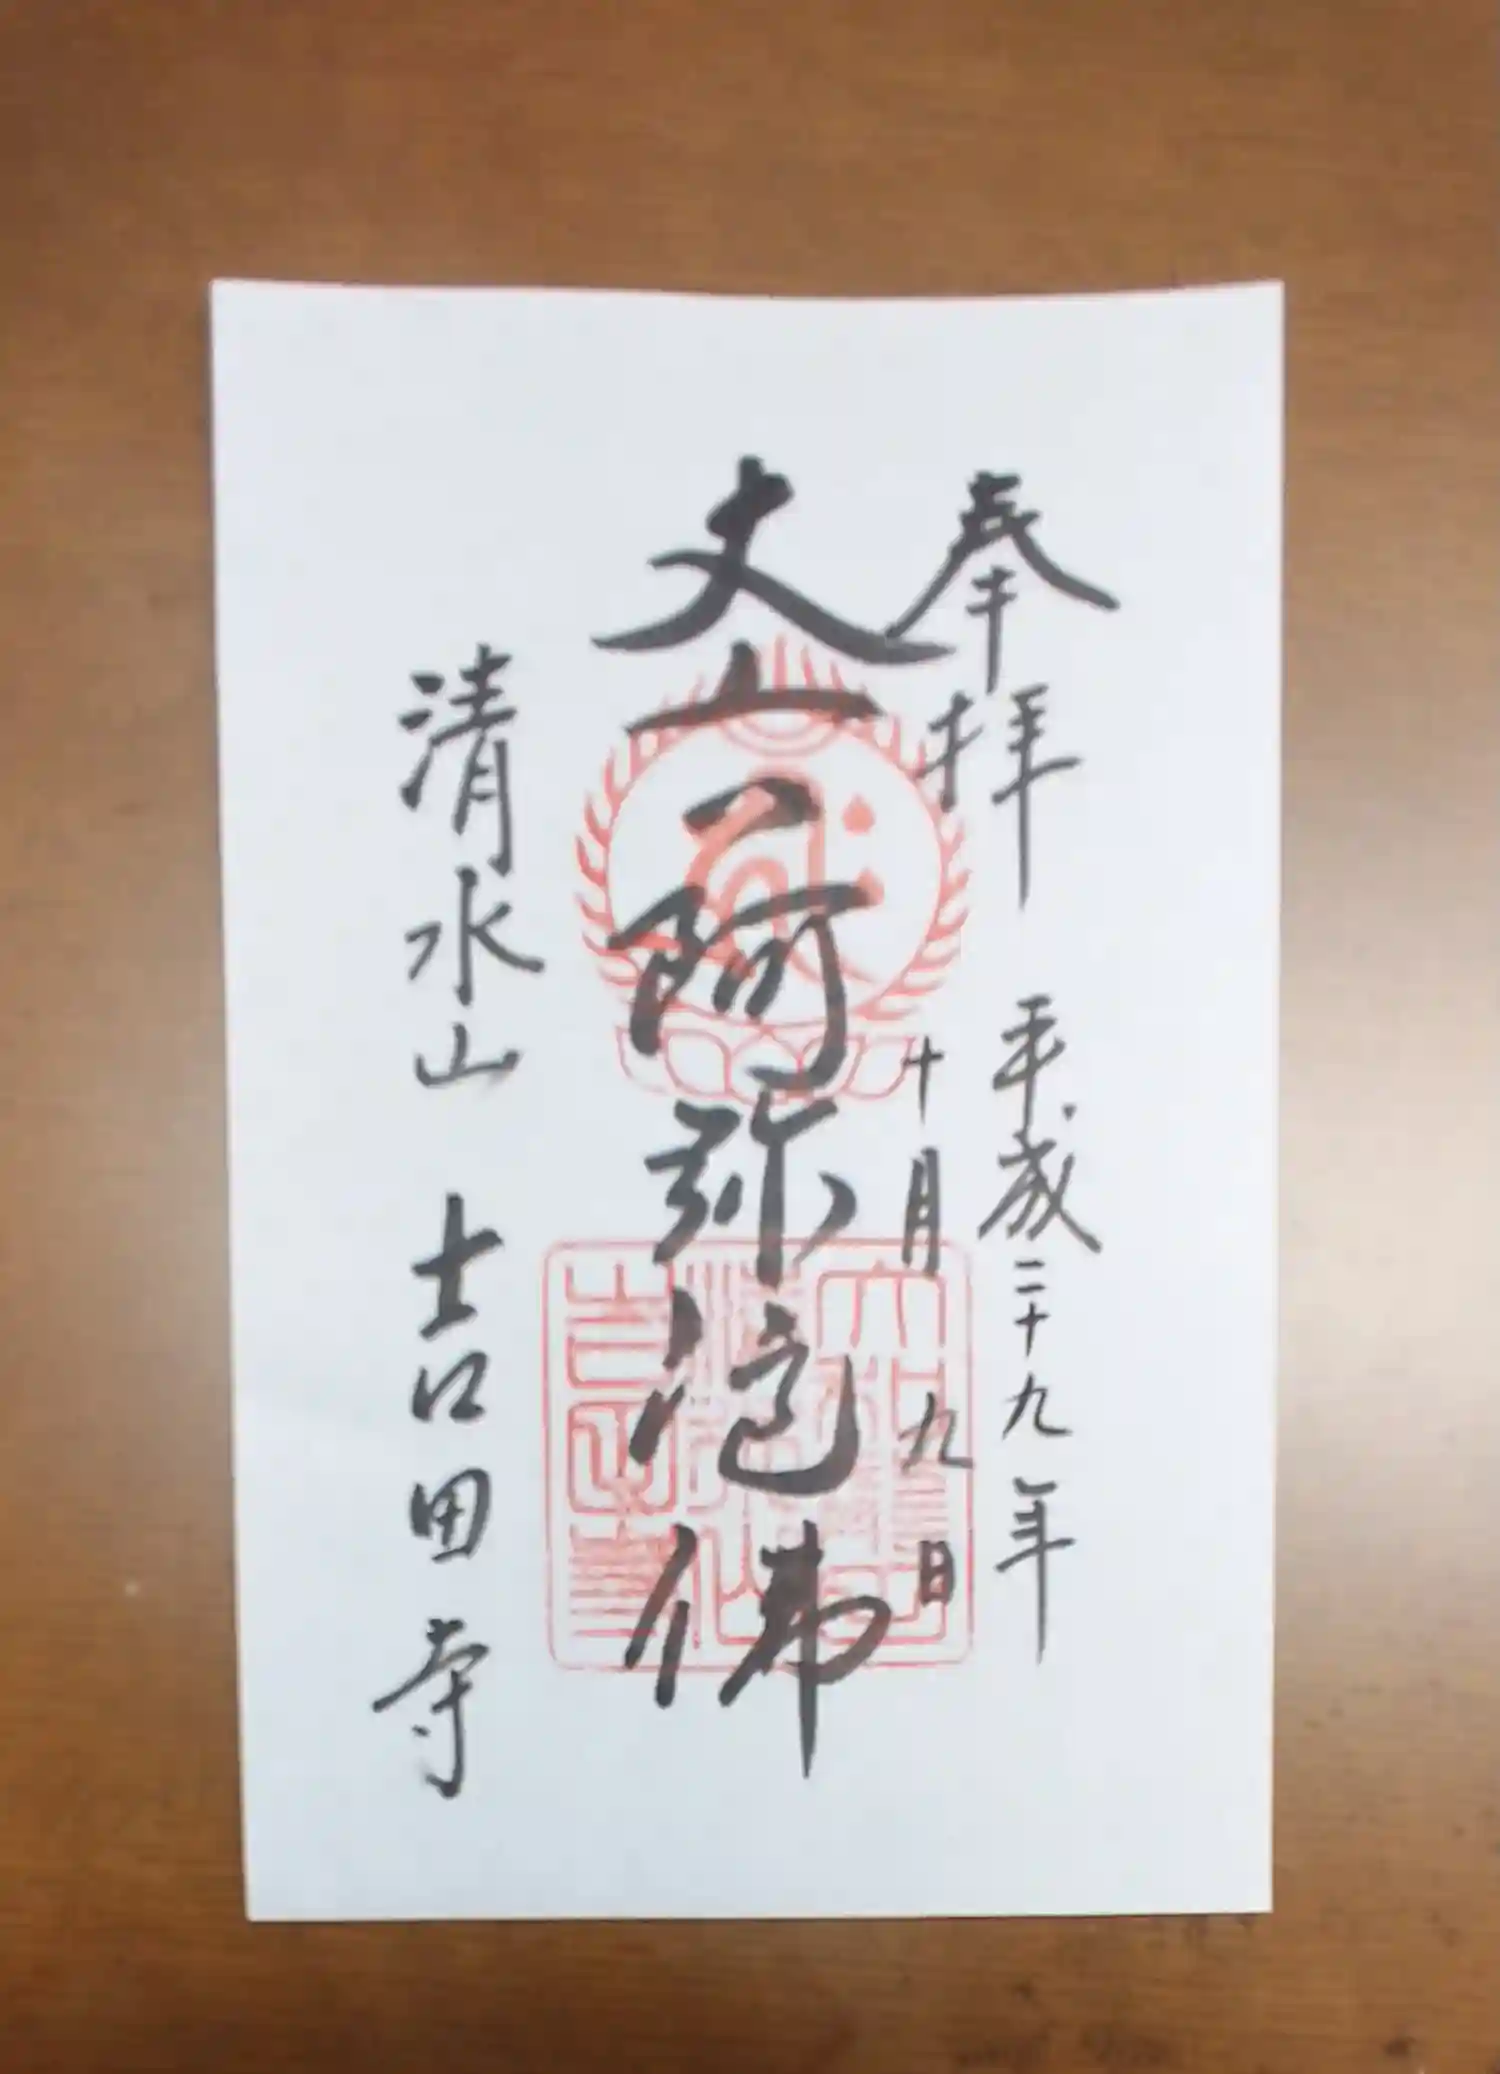 奉拝 平成二十九年
十月九日
丈六阿弥陀佛
清水山 吉田寺